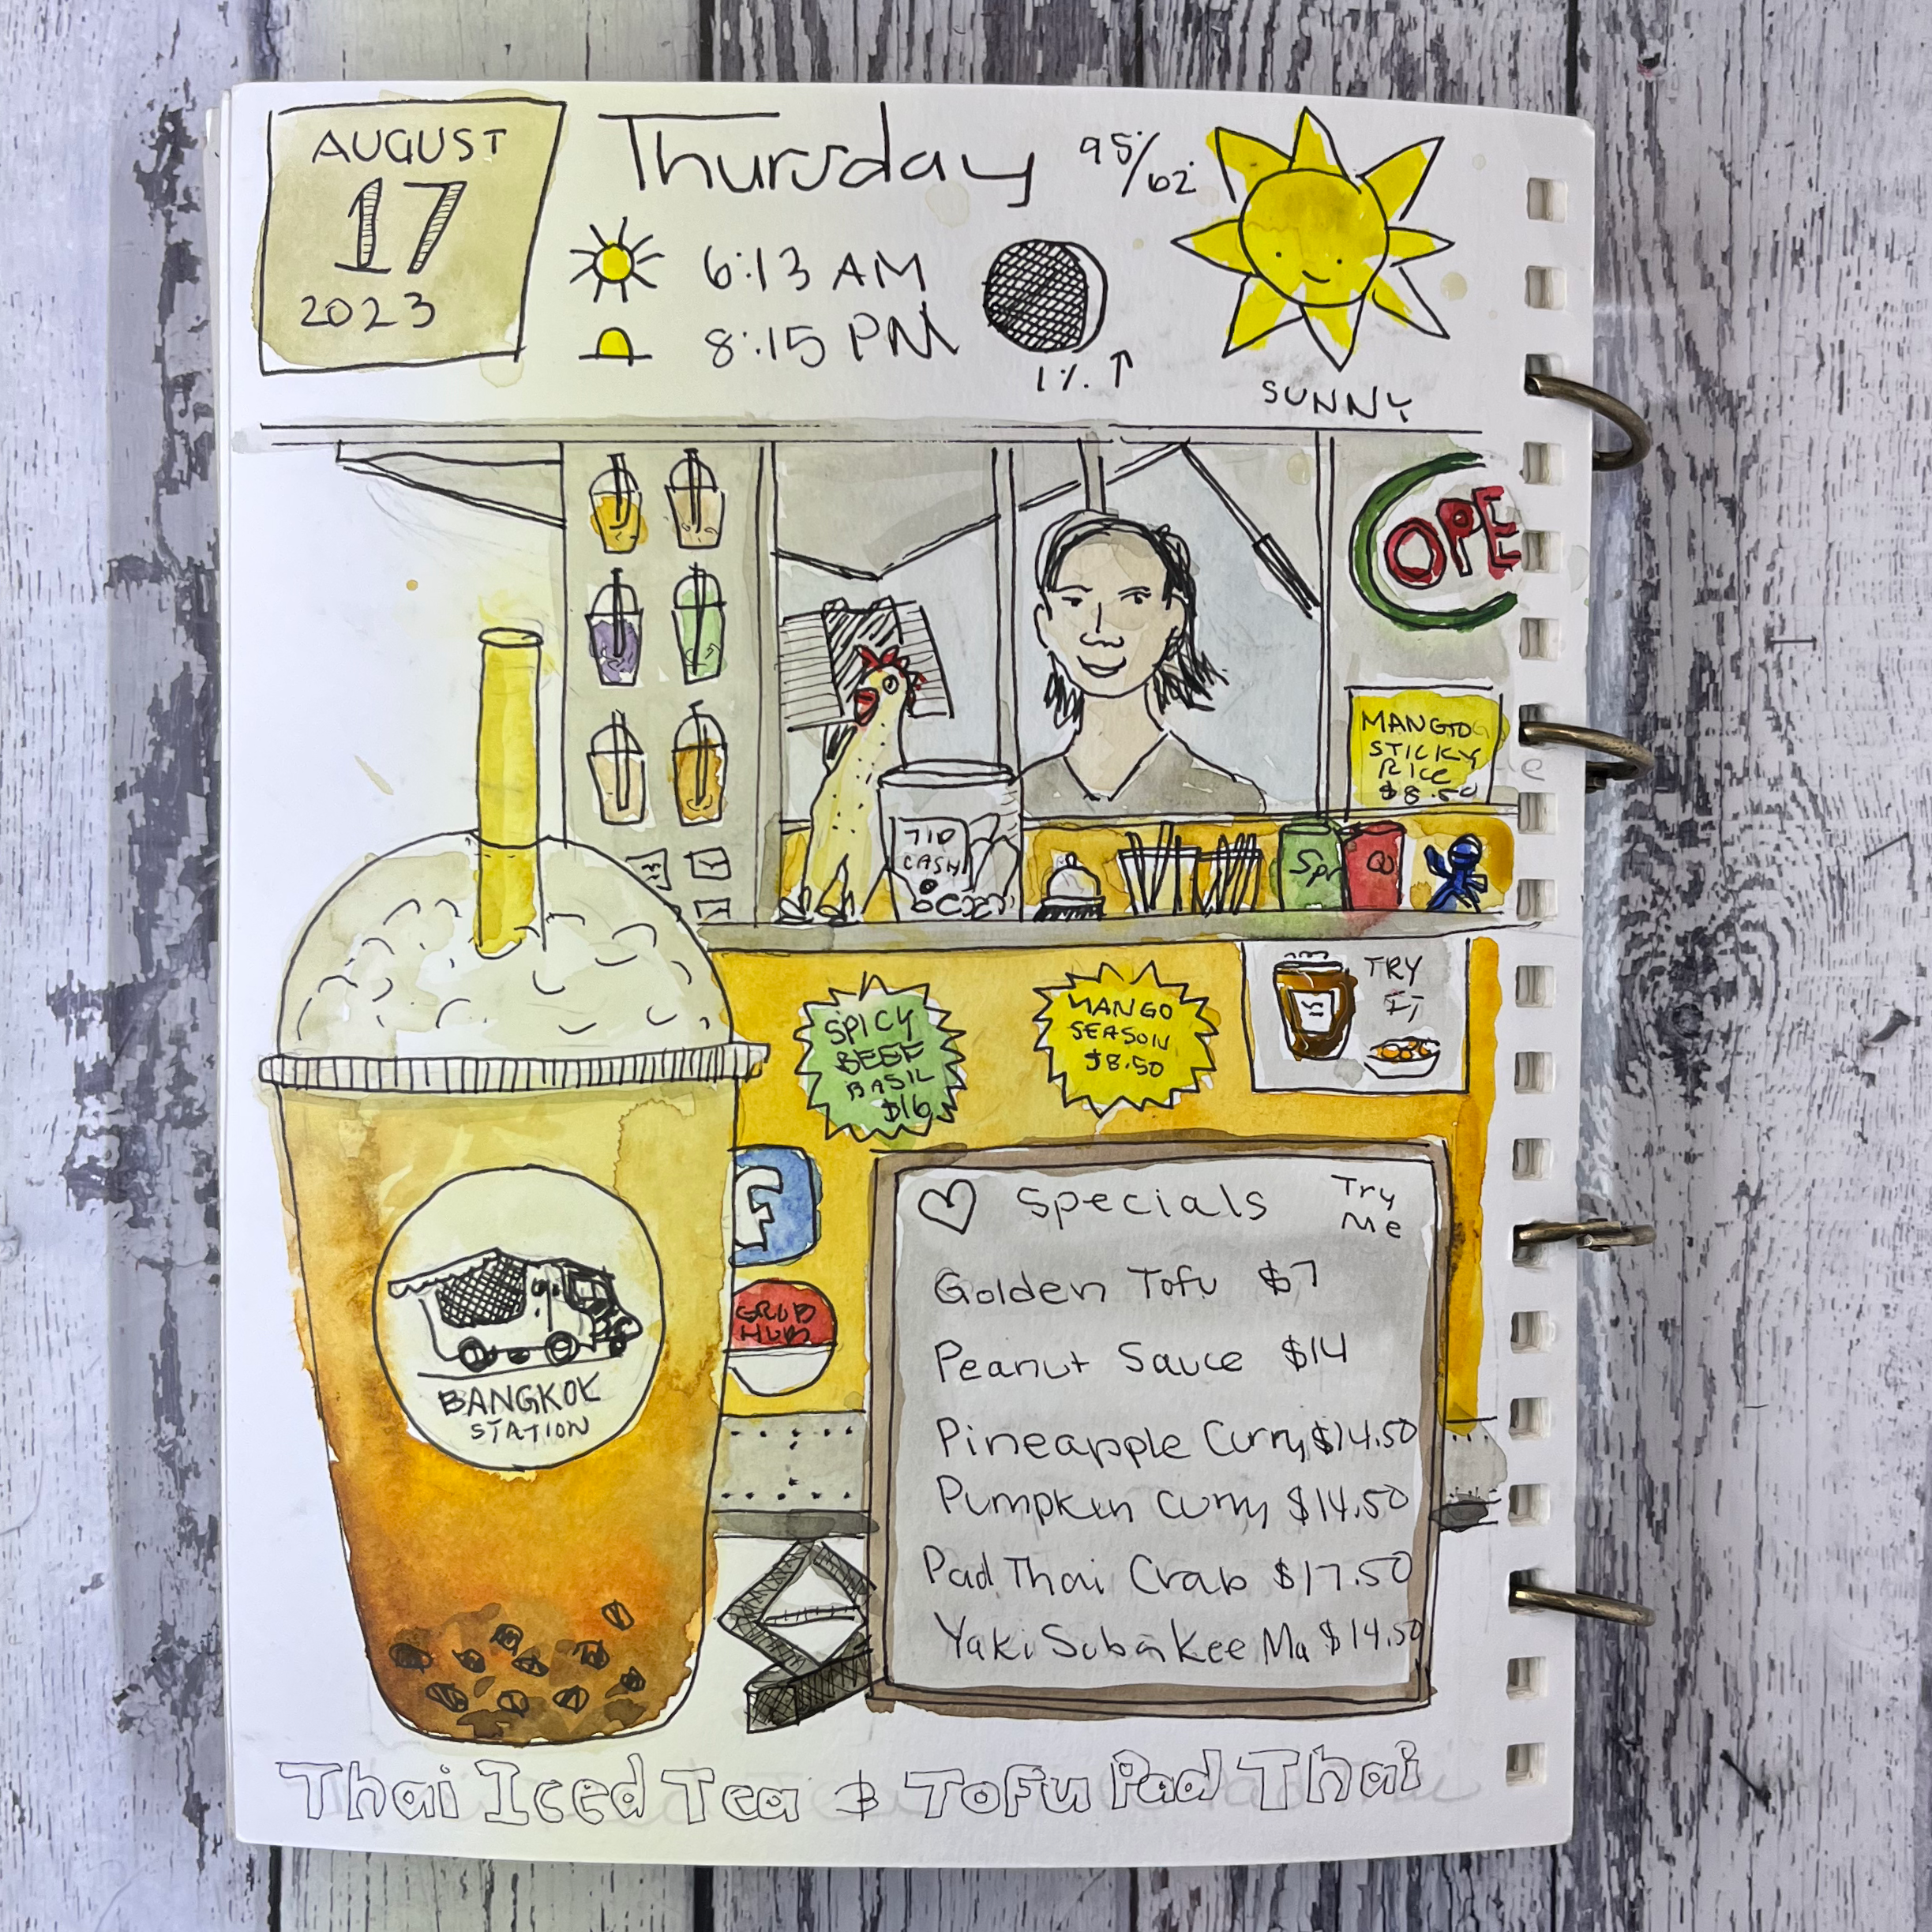 AUGUST
17
2023
Thursday
95/62
6:13 AM
8:15 PM
1% ↑
SUNNY
OPE
MANGO
STICKY
RICE
$8.50
TIP
CASH
Spr
SPICY
BEEF
BASIL
$16
MANGO
SEASON
$8.50
TRY
IT
f
GRUB
HUB
BANGKOK
STATION
Specials
Try
Me
Golden Tofu $7
Peanut Sauce $14
Pineapple Curry $14.50
Pumpkin Curry $14.50
Pad Thai Crab $17.50
Yaki Soba Kee Ma $14.50
Thai Iced Tea & Tofu Pad Thai